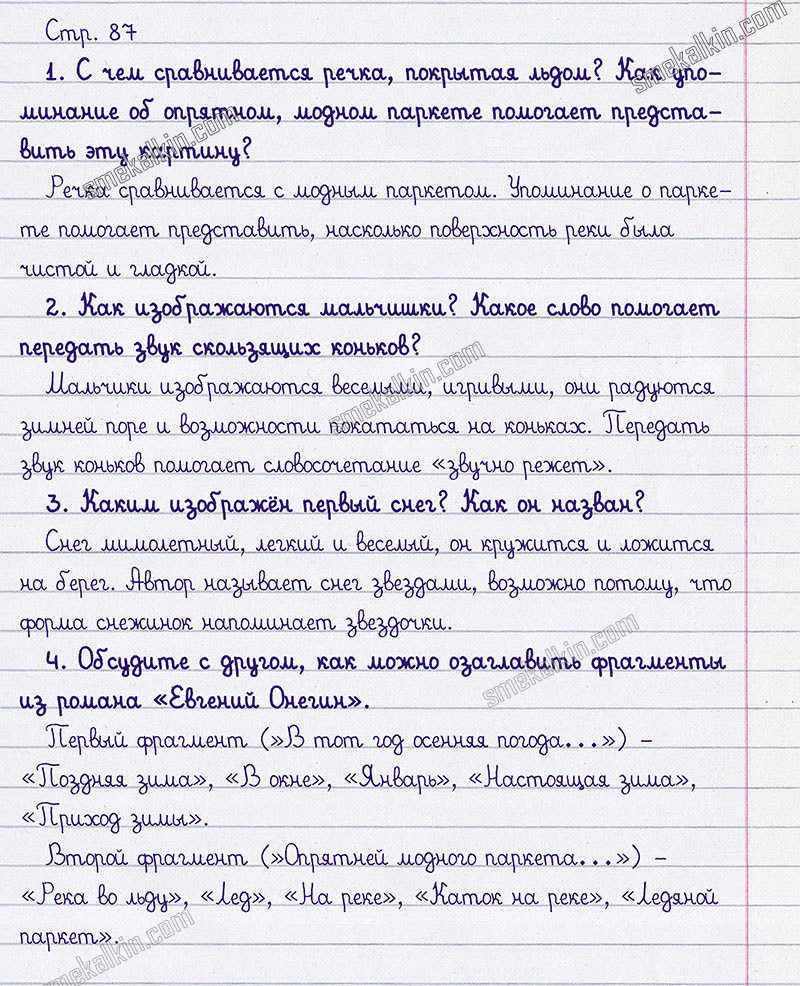 Стр. 87
1. С чем сравнивается речка, покрытая льдом? Как упо-
минание об опрятном, модном паркете помогает предста-
вить эту картину?
Речка сравнивается с модным паркетом. Упоминание о парке-
те помогает представить, насколько поверхность реки была
чистой и гладкой.
2. Как изображаются мальчишки? Какое слово помогает
передать звук скользящих коньков?
Мальчики изображаются веселыми, игривыми, они радуются
зимней поре и возможности покататься на коньках. Передать
звук коньков помогает словосочетание «звучно режет».
3. Каким изображён первый снег? Как он назван?
Снег мимолетный, легкий и веселый, он кружится и ложится
на берег. Автор называет снег звездами, возможно потому, что
форма снежинок напоминает звездочки.
4. Обсудите с другом, как можно озаглавить фрагменты
из романа «Евгений Онегин».
Первый фрагмент (»В тот год осенняя погода...») –
«Поздняя зима», «В окне», «Январь», «Настоящая зима»,
«Приход зимы».
Второй фрагмент (»Опрятней модного паркета...») –
«Река во льду», «Лед», «На реке», «Каток на реке», «Ледяной
паркет».
smekalkin.com
smekalkin.com
smekalkin.com
smekalkin.com
smekalkin.com